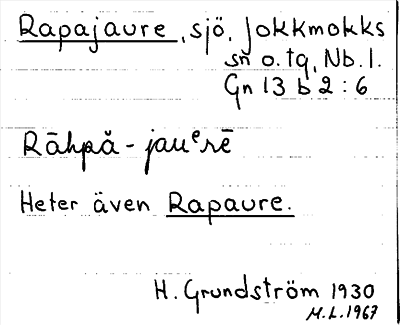 Rapajaure, sjö, Jokkmokks
sn o. tg, Nb. l.
Gn 13 b 2 : 6
Rāhpå̆ - jauᵉrē
Heter även Rapaure.
H. Grundström 1930
M.L. 1967